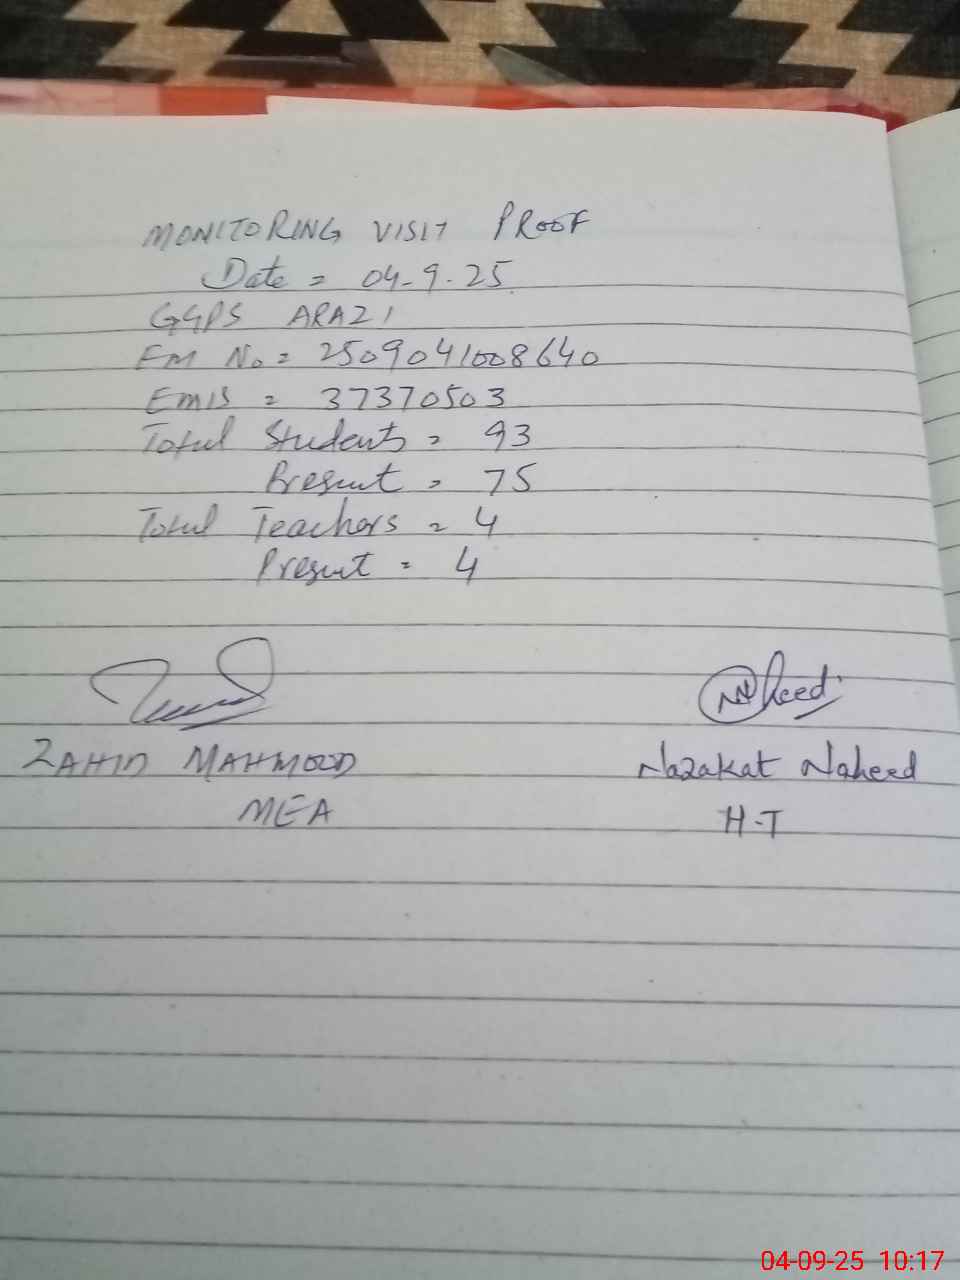 MONITORING VISIT PROOF
Date = 04-9-25
GGPS ARAZI
EM No = 2509041008640
EMIS = 37370503
Total Students = 93
Present = 75
Total Teachers = 4
Present = 4
Naheed
ZAHID MAHMOOD Nazakat Naheed
MEA H-T
04-09-25 10:17